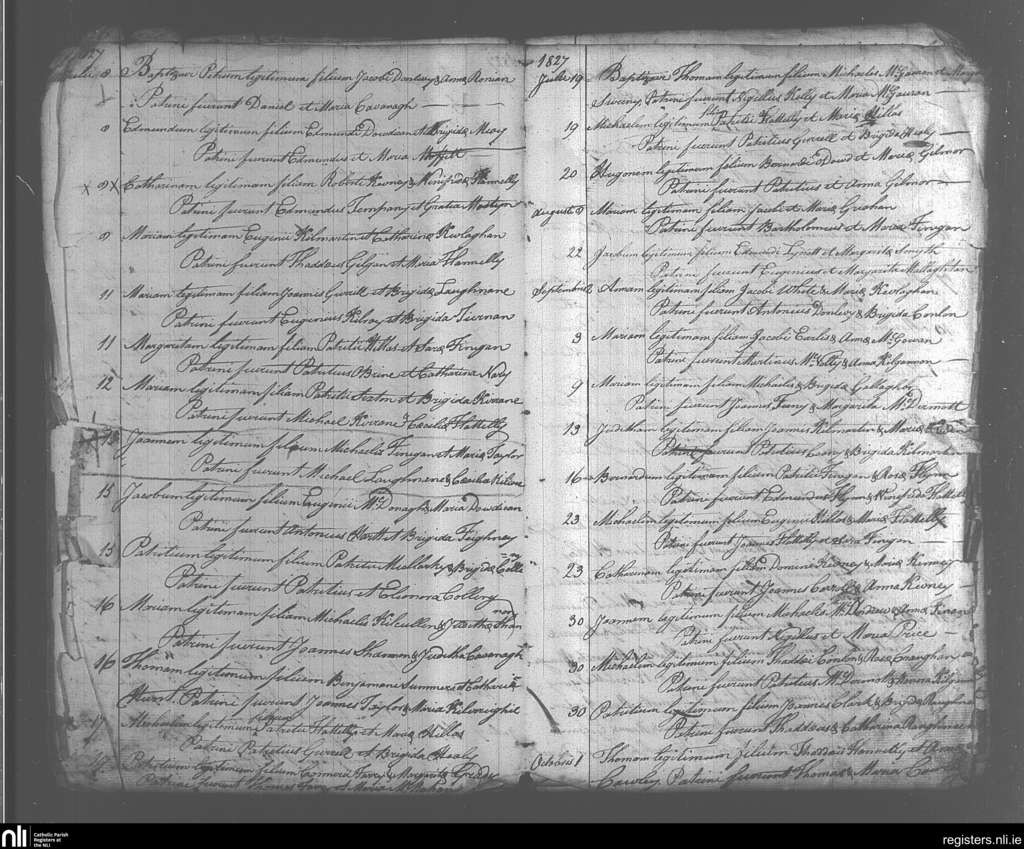 1827
8 Baptizavi Petrum legitimum filium Jacobi Dunlevy & Anna Ronian
Patrini fuerunt Daniel et Maria Cavanagh
8 Edmundum legitimum filium Edmundi Dowdican et Brigida Meoy
Patrini fuerunt Edmundus et Maria Moffitt
X 9 X Catharinam legitimam filiam Roberti Keoney & Winifrida Flannelly
Patrini fuerunt Edmundus Tempany et Gratia Mostyn
9 Mariam legitimam Eugenii Kilmartin et Catharina Kevlaghan
Patrini fuerunt Thaddaus Gilgan et Maria Flannelly
11 Mariam legitimam filiam Joannis Gurrill et Brigida Laughnane
Patrini fuerunt Eugenius Kilroy et Brigida Tiernan
11 Margaritam legitimam filiam Patritii Killas et Sara Finigan
Patrini fuerunt Patritius OBeine et Catharina Kady
12 Mariam legitimam filiam Patritii Featon et Brigida Kivrane
Patrini fuerunt Michael Kivrane & Cecilia Flattelly
Joannem legitimum filium Michaelis Finigan et Maria Taylor
Patrini fuerunt Michael Loughnane & Cecilia
15 Jacobum legitimum filium Eugenii McDonagh & Maria Dowdican
Patrini fuerunt Antonius et Brigida Feighney
15 Patritium legitimum filium Patritii Mullarky & Brigida Colle
=ry
Patrini fuerunt Patritius et Eleonora Collery
16 Mariam legitimam filiam Michaelis Kilcullen & Judith Shan
non
Patrini fuerunt Joannes Shannon & Juditha Cavanagh
16 Thomam legitimum filium Benjamini Summers et Catharina
Hunt. Patrini fuerunt Joannes Taylor & Maria Kilvreaghil
17 Michaelem legitimum filium Patritii Flattelly et Maria Killas
Patrini Patritius Gurrill et Brigida Healy
Patritium legitimum filium Connorii Favy & Margarita Grady
Patrini fuerunt Thomas Favy et Maria
1827
Julii 19 Baptizavi Thomam legitimum filium Michaelis McGauran et Margar
Sweeny, Patrini fuerunt Nigellus Kelly et Maria McGauran
19 Michaelem legitimum Patritii Flattelly et Maria Killas
Patrini fuerunt Patritius Gurrill et Brigida Healy
20 Hugonem legitimum filium Bernardi ODowd et Maria Gilmor
Patrini fuerunt Patritius et Anna Gilmor
August 8 Mariam legitimam filiam Jacobi et Maria Grahan
Patrini fuerunt Bartholomeus et Maria Finigan
22 Jacobum legitimum filium Edmundi Lynott et Margarita Smyth
Patrini fuerunt Eugenius et Margarita
Septembris 2 Annam legitimam filiam Jacobi White & Maria Kevlaghan
Patrini fuerunt Antonius Dunlevy & Brigida Conlon
3 Mariam legitimam filiam Jacobi Earlis & Anna McGowan
Patrini fuerunt Martinus McNally & Anna Kilgannon
9 Mariam legitimam filiam Michaelis & Brigida Gallagher
Patrini fuerunt Joannes Feany & Margarita McDermott
13 Juditham legitimam filiam Joannis Kilmartin & Maria
Patrini fuerunt Patritius & Brigida Kilmartin
16 Bernardum legitimum filium Patritii Finigan & Rosa Flynn
Patrini fuerunt Edmundus Flynn & Winifrida
23 Michaelem legitimum filium Eugenii Killas & Maria Flattelly
Patrini fuerunt Joannes Flattelly et Sara Finigan
23 Catharinam legitimam filiam Dominici Kedney & Maria Kenney
Patrini fuerunt Joannes Carroll & Anna Kedney
30 Joannem legitimum filium Michaelis McAndrew & Anna
Patrini fuerunt Nigellus et Maria Price
30 Michaelem legitimum filium Thaddai Conlon & Rosa Cranghan
Patrini fuerunt Patritius McDermott &
30 Patritium legitimum filium Francis Clark & Brigida
Patrini fuerunt Thaddaus & Catharina
Octobris 1 Thomam legitimum filium Thaddai Flannelly et Anna
Cawley. Patrini fuerunt Thomas & Maria
nli
Catholic Parish
Registers at
the NLI
registers.nli.ie